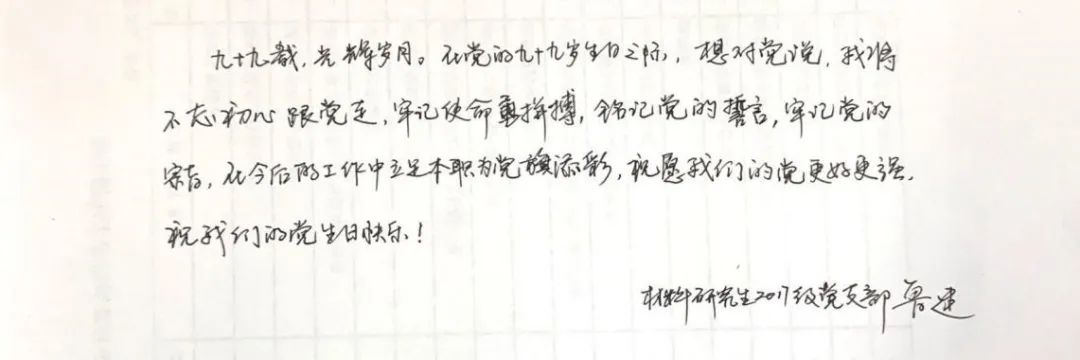 九十九载，光辉岁月。在党的九十九岁生日之际，想对党说，我将
不忘初心跟党走，牢记使命勇拼搏，铭记党的誓言，牢记党的
宗旨，在今后的工作中立足本职为党旗添彩，祝愿我们的党更好更强。
祝我们的党生日快乐！
材料研究生2017级党支部 鲁建